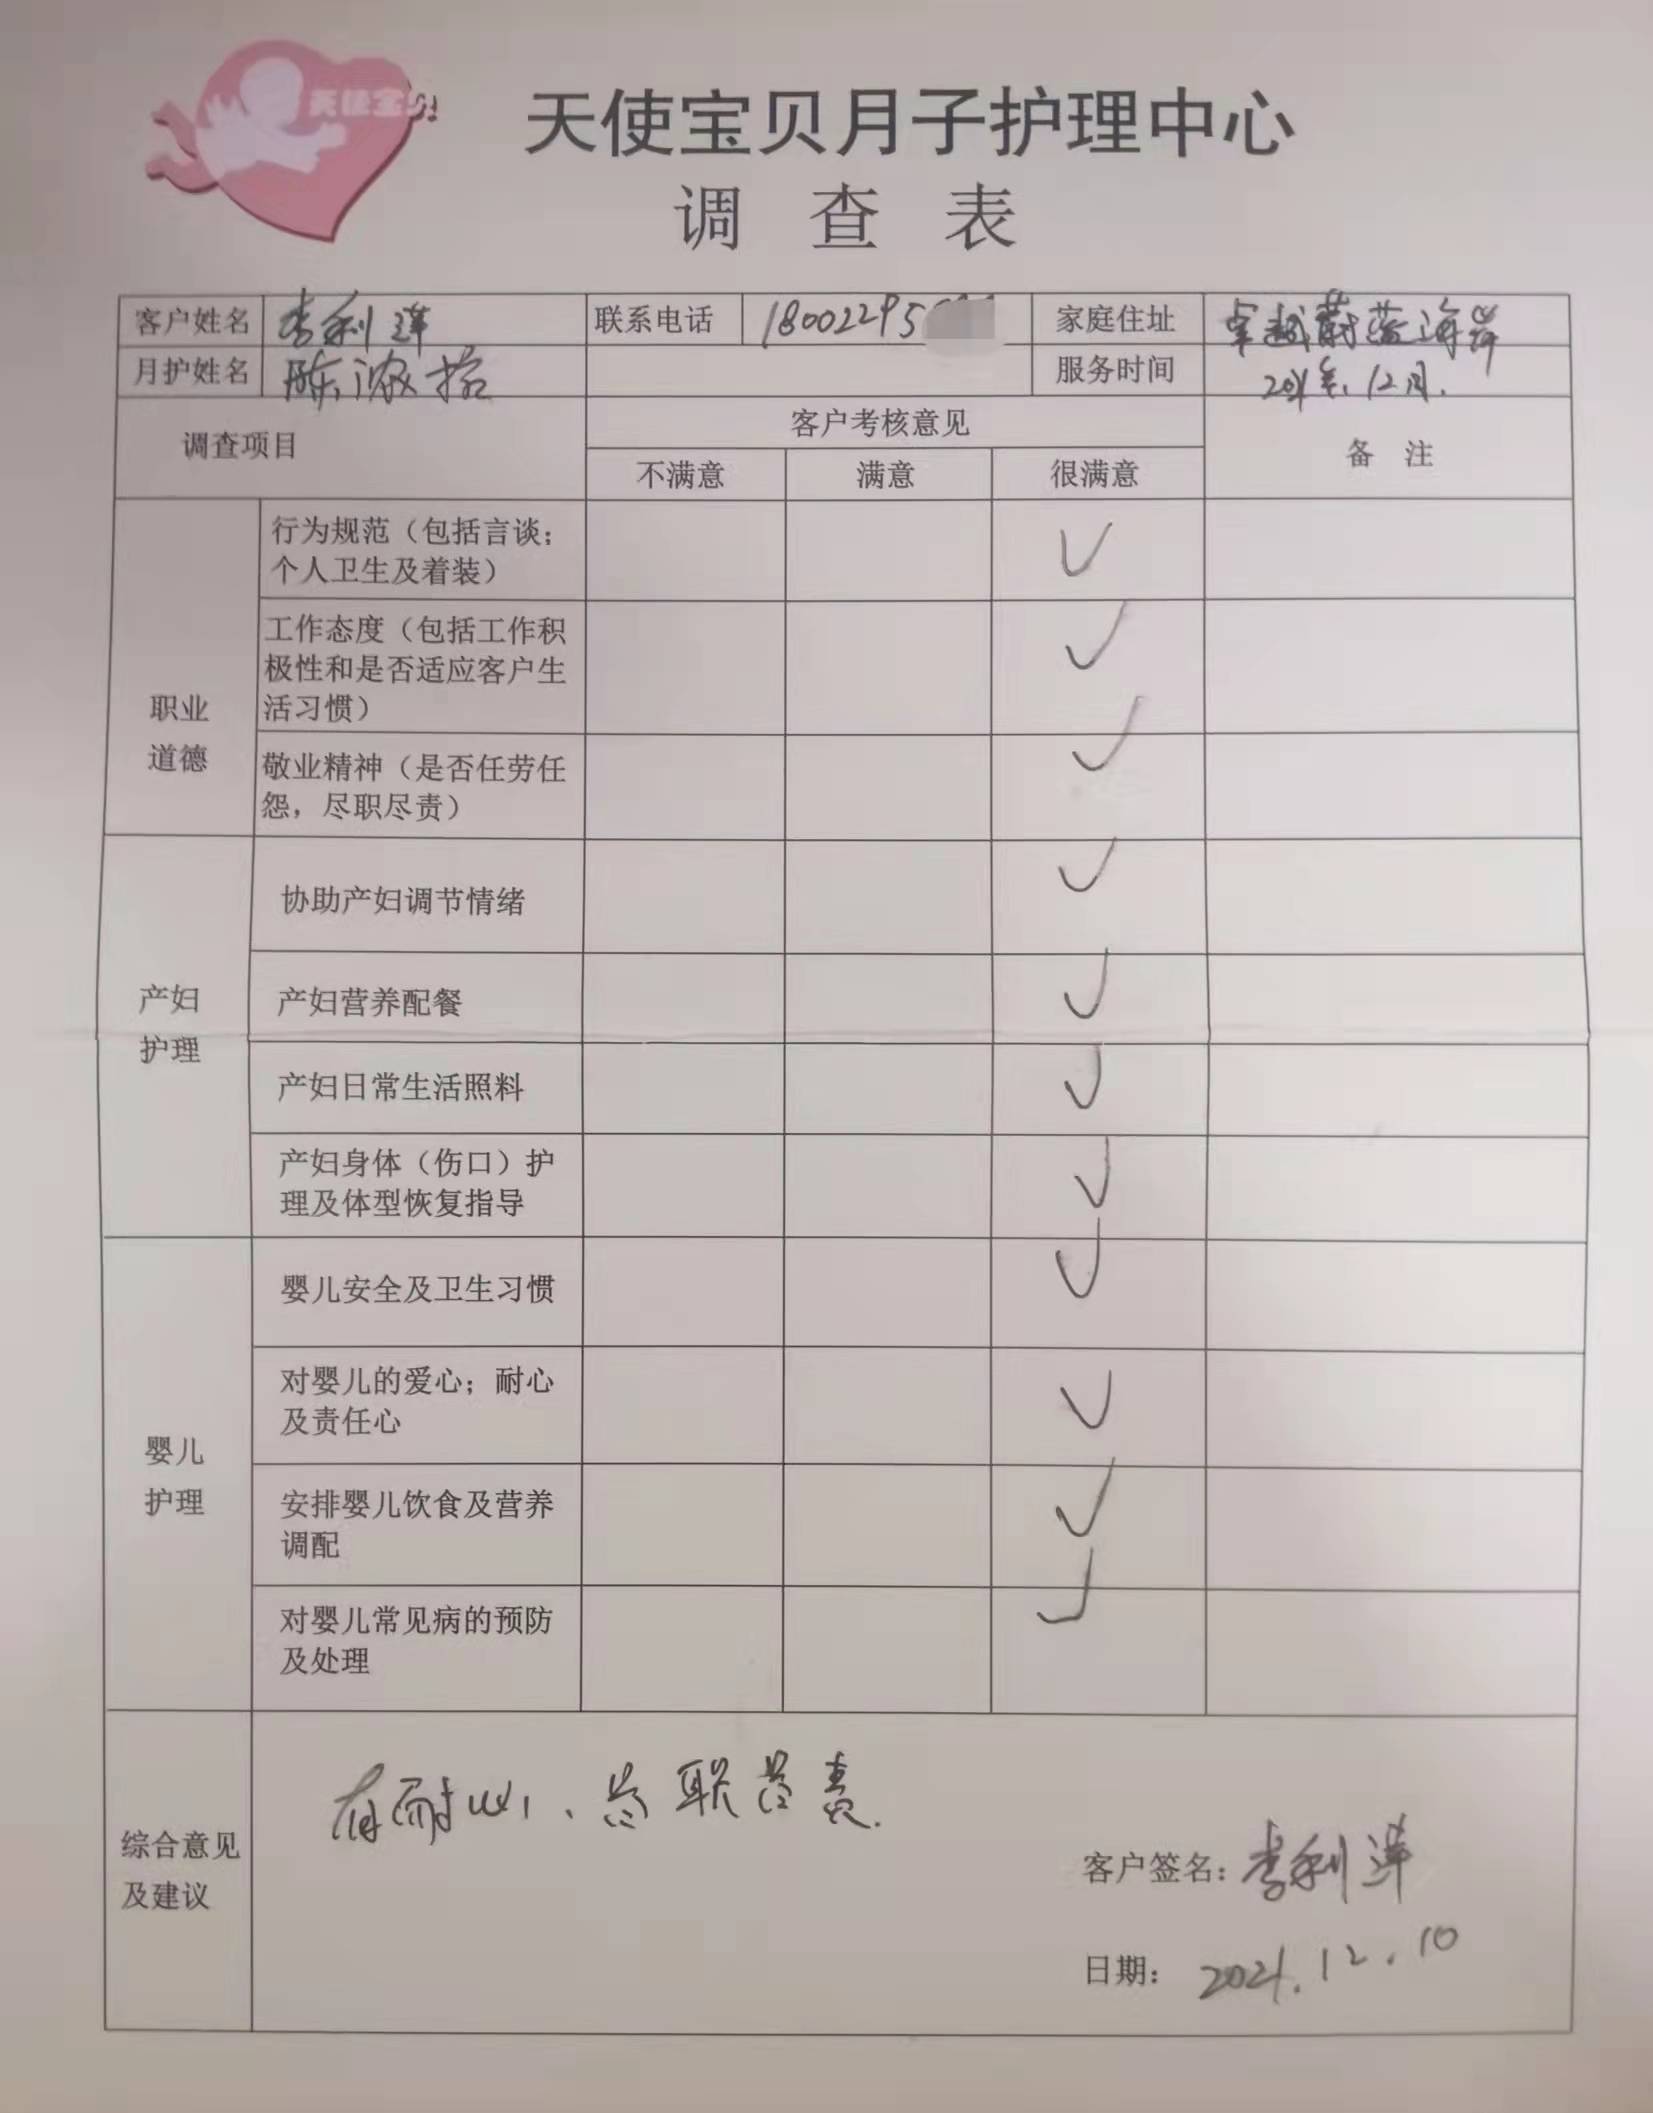 天使宝贝
天使宝贝月子护理中心
调 查 表
客户姓名 李利 联系电话 18002295 家庭住址 卓越蔚蓝海岸
月护姓名 陈 服务时间 2021年.12月.
调查项目 客户考核意见 备 注
不满意 满意 很满意
职业
道德
行为规范（包括言谈；
个人卫生及着装） ✓
工作态度（包括工作积
极性和是否适应客户生
活习惯） ✓
敬业精神（是否任劳任
怨，尽职尽责） ✓
产妇
护理
协助产妇调节情绪 ✓
产妇营养配餐 ✓
产妇日常生活照料 ✓
产妇身体（伤口）护
理及体型恢复指导 ✓
婴儿
护理
婴儿安全及卫生习惯 ✓
对婴儿的爱心；耐心
及责任心 ✓
安排婴儿饮食及营养
调配 ✓
对婴儿常见病的预防
及处理 ✓
综合意见
及建议
有耐心、尽职尽责.
客户签名：李利
日期： 2021.12.10